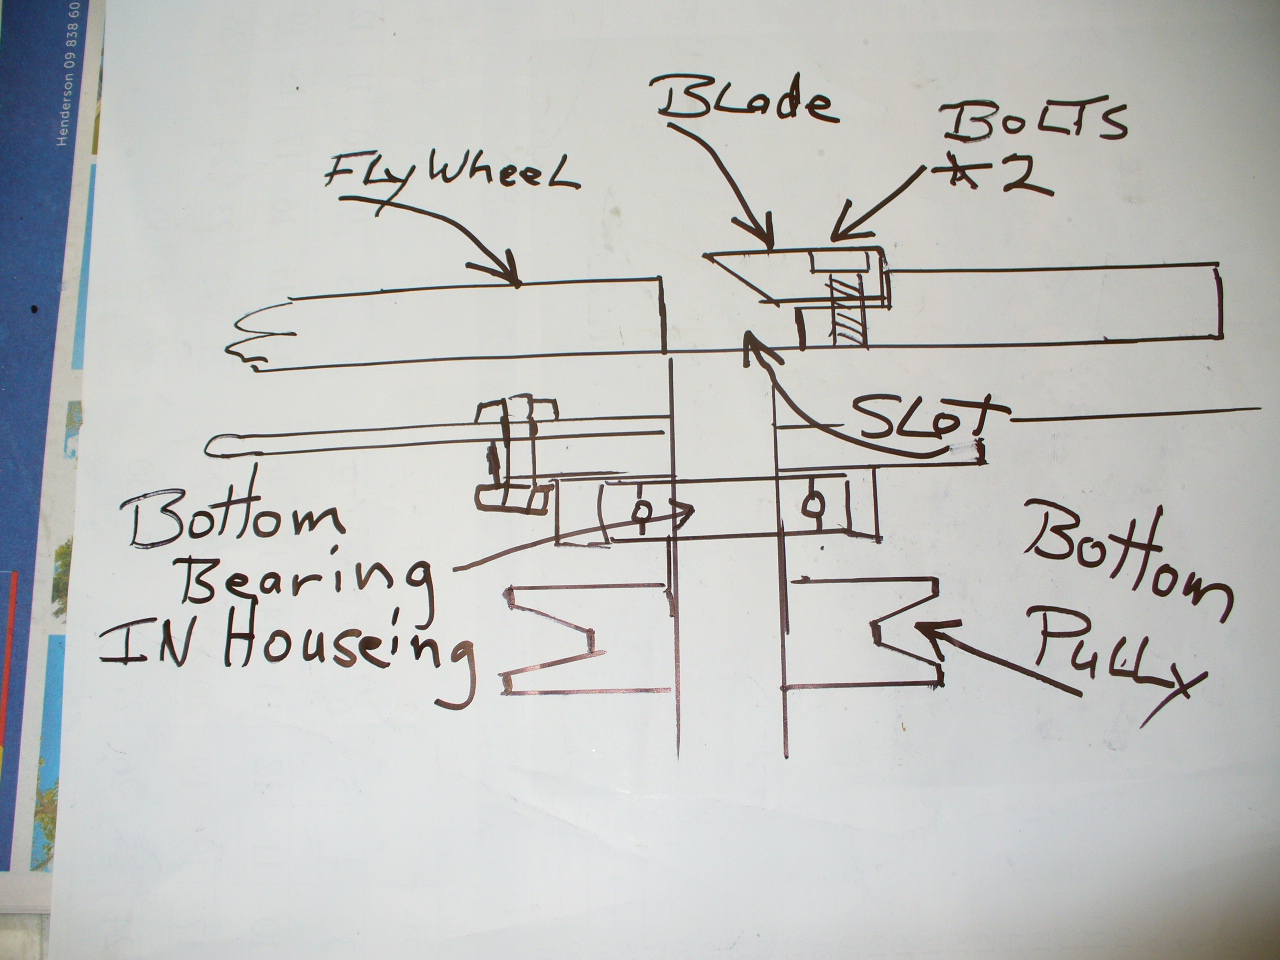 Henderson 09 838 60
BLade
BOLTS
*2
FLyWheeL
SLOT
Bottom
Bearing
IN Houseing
Bottom
PuLLy